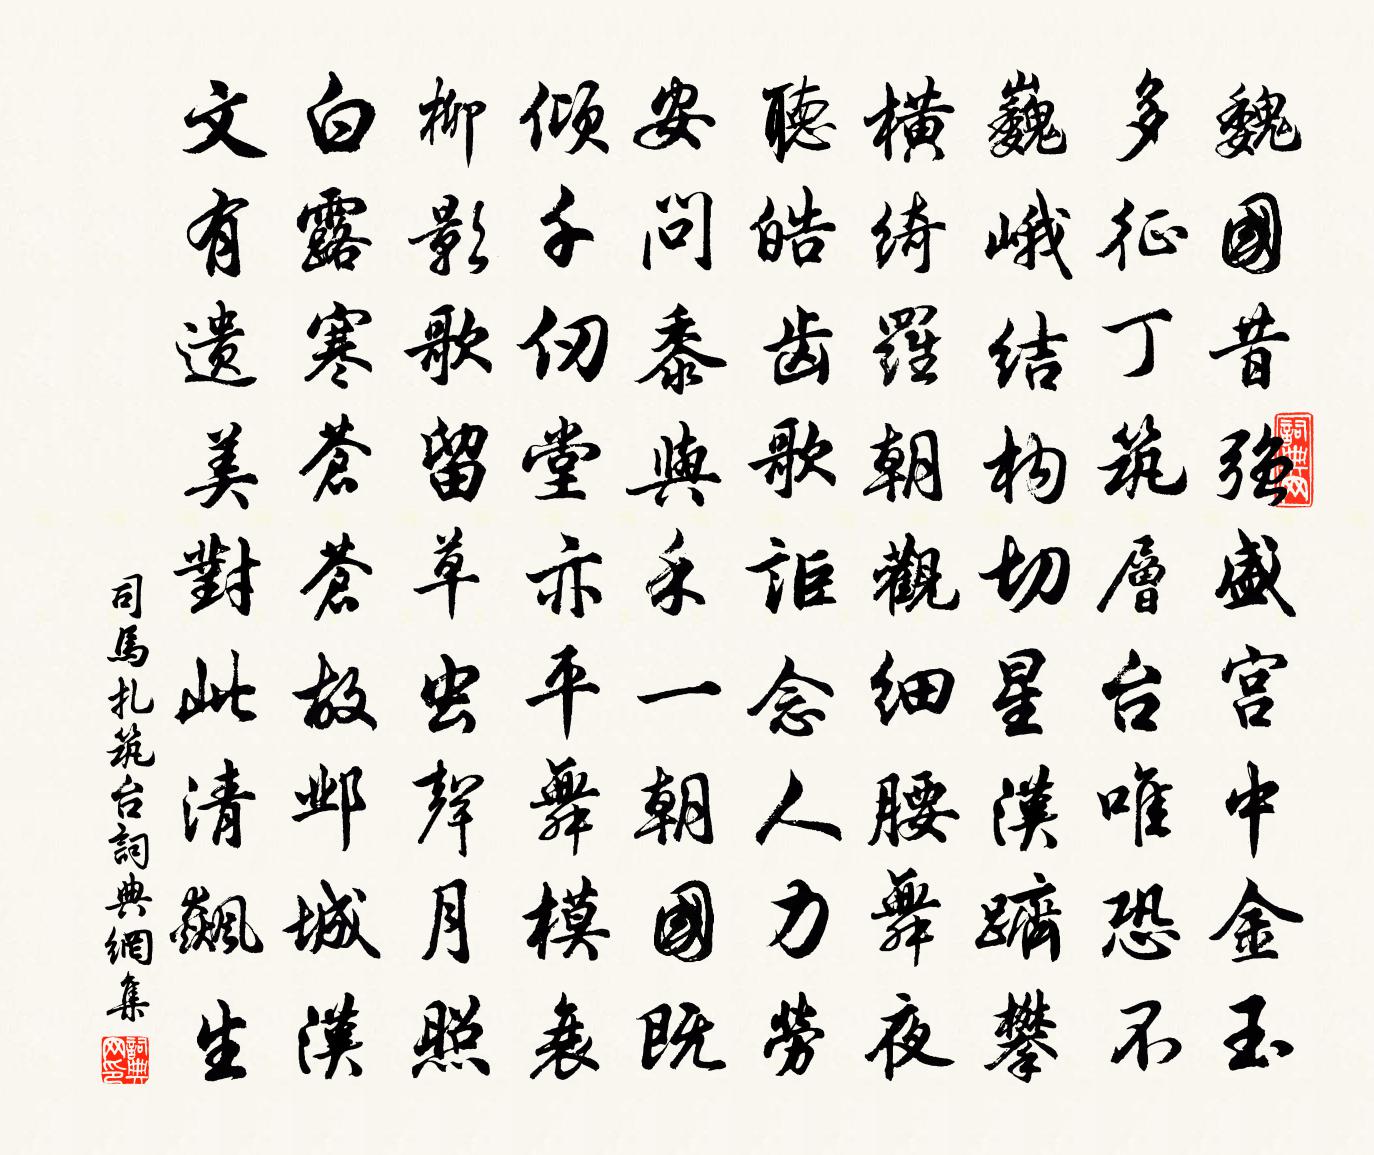 魏國昔强盛宫中金玉
多征丁筑層台唯恐不
巍峨結构切星漢躋攀
横綺羅朝觀細腰舞夜
聽皓齿歌詎念人力勞
安問黍與禾一朝國既
傾千仞堂亦平舞模衰
柳影歌留草虫聲月照
白露寒蒼蒼故邺城漢
文有遺美對此清飆生
司馬扎筑台詞典網集
詞典网
詞典网印